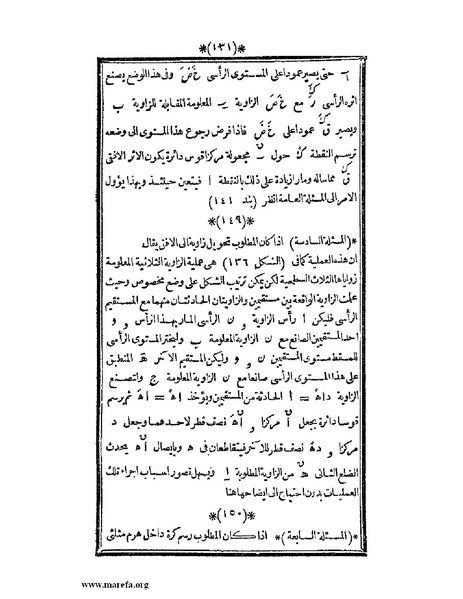 *(١٣١)*
حتى يصير عمودا على المستوى الرأسى وفى هذا الوضع يصنع
اثره الرأسى مع الزاوية المعلومة المقابلة للزاوية ب
ويصير عمودا على فاذا فرض رجوع هذا المستوى الى وضعه
ترسم النقطة حول مجعولة مركزا قوس دائرة يكون الاثر الافقى
مماسا له ومارا زيادة على ذلك بالنقطة ا فيتعين حينئذ وبهذا يؤول
الامر الى المسئلة العامة انظر (بند ١٤١)
*(١٤٩)*
*(المسئلة السادسة)* اذا كان المطلوب تحويل زاوية الى الافق يقال
ان هذه العملية كافى (الشكل ١٣٦) هى عملية الزاوية الثلاثية المعلومة
زواياها الثلاث السطحية لكن يمكن ترتيب الشكل على وضع مخصوص وحيث
علمت الزاوية الواقعة بين مستقيمين والزاويتان الحادثتان منهما مع المستقيم
الرأسى فليكن ا رأس الزاوية و ن الرأسى المار بهذا الرأس و و
احد المستقيمين الصانع مع ن الزاوية المعلومة ب وليختر المستوى الرأسى
للمسقط مستوى المستقيمين ن و و وليكن المستقيم الاخر ه المنطبق
على هذا المستوى الرأسى صانعا مع ن الزاوية المعلومة ج ولتصنع
الزاوية = ا الحادثة من المستقيمين ويؤخذ = ثم يرسم
قوسا دائرة بجعل مركزا و نصف قطر لاحدهما وجعل د
مركزا و نصف قطر للاخر فيتقاطعان فى ه وبايصال يحدث
الضلع الثانى من الزاوية المطلوبة ا ويسهل تصور اسباب اجراء تلك
العمليات بدون احتياج الى ايضاحها هنا
*(١٥٠)*
*(المسئلة السابعة)* اذا كان المطلوب رسم كرة داخل هرم مثلثى
www.marefa.org